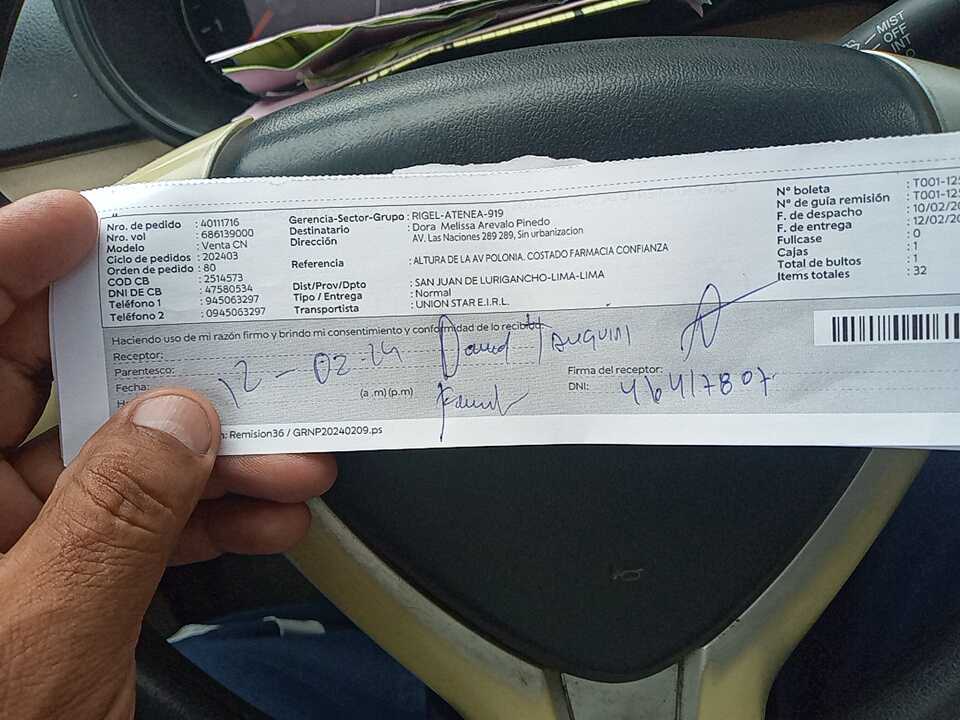 MIST
OFF
INT
Nro. de pedido : 40111716
Nro. vol : 686139000
Modelo : Venta CN
Ciclo de pedidos : 202403
Orden de pedido : 80
COD CB : 2514573
DNI DE CB : 47580534
Teléfono 1 : 945063297
Teléfono 2 : 0945063297
Gerencia-Sector-Grupo : RIGEL-ATENEA-919
Destinatario : Dora Melissa Arevalo Pinedo
Dirección : AV. Las Naciones 289 289, Sin urbanizacion
Referencia : ALTURA DE LA AV POLONIA. COSTADO FARMACIA CONFIANZA
Dist/Prov/Dpto : SAN JUAN DE LURIGANCHO-LIMA-LIMA
Tipo / Entrega : Normal
Transportista : UNION STAR E.I.R.L.
N° boleta : T001-125
N° de guía remisión : T001-125
F. de despacho : 10/02/20
F. de entrega : 12/02/20
Fullcase : 0
Cajas : 1
Total de bultos : 1
Items totales : 32
Haciendo uso de mi razón firmo y brindo mi consentimiento y conformidad de lo recibido.
Receptor:
Parentesco:
Fecha: 12-02-24
(a.m)(p.m)
Firma del receptor:
DNI: 46417807
n: Remision36 / GRNP20240209.ps